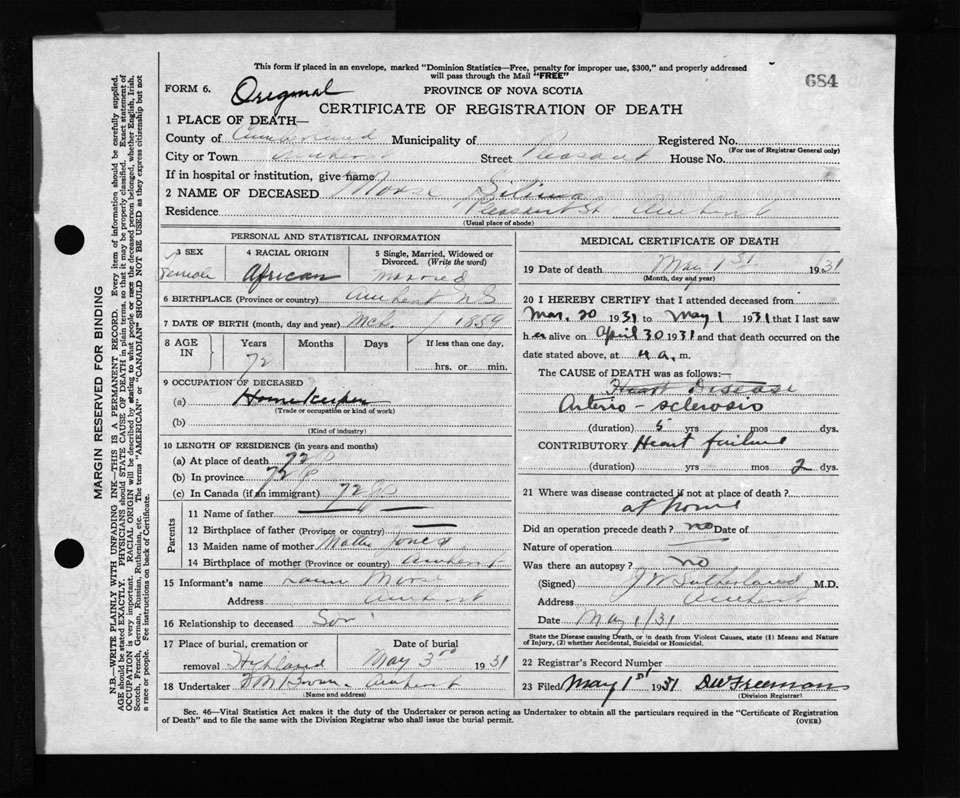 This form if placed in an envelope, marked "Dominion Statistics—Free, penalty for improper use, $300," and properly addressed
will pass through the Mail "FREE"
684
FORM 6. Original
PROVINCE OF NOVA SCOTIA
CERTIFICATE OF REGISTRATION OF DEATH
1 PLACE OF DEATH—
County of Cumberland Municipality of Registered No.
(For use of Registrar General only)
City or Town Amherst Street Pleasant House No.
If in hospital or institution, give name
2 NAME OF DECEASED Morse
Residence Pleasant St Amherst
(Usual place of abode)
PERSONAL AND STATISTICAL INFORMATION
3 SEX 4 RACIAL ORIGIN 5 Single, Married, Widowed or
Divorced. (Write the word)
Female African married
6 BIRTHPLACE (Province or country) Amherst N S
7 DATE OF BIRTH (month, day and year) Mch. 1 1859
8 AGE IN Years Months Days If less than one day,
72 hrs. or min.
9 OCCUPATION OF DECEASED
(a) Homekeeper
(Trade or occupation or kind of work)
(b)
(Kind of industry)
10 LENGTH OF RESIDENCE (in years and months)
(a) At place of death 72
(b) In province 72
(c) In Canada (if an immigrant) 72
Parents
11 Name of father
12 Birthplace of father (Province or country)
13 Maiden name of mother Jones
14 Birthplace of mother (Province or country) Amherst
15 Informant's name Morse
Address Amherst
16 Relationship to deceased Son
17 Place of burial, cremation or Date of burial
removal Highland May 3rd 1931
18 Undertaker Amherst
(Name and address)
MEDICAL CERTIFICATE OF DEATH
19 Date of death May 1st 1931
(Month, day and year)
20 I HEREBY CERTIFY that I attended deceased from
Mar. 20 1931 to May 1 1931 that I last saw
her alive on April 30 1931 and that death occurred on the
date stated above, at 4 a. m.
The CAUSE of DEATH was as follows:—
Heart Disease
Arterio-sclerosis
(duration) 5 yrs mos dys.
CONTRIBUTORY Heart failure
(duration) yrs mos 2 dys.
21 Where was disease contracted if not at place of death?
at home
Did an operation precede death? no Date of
Nature of operation
Was there an autopsy? no
(Signed) J W Sutherland M.D.
Address Amherst
Date May 1/31
State the Disease causing Death, or in death from Violent Causes, state (1) Means and Nature
of Injury, (2) whether Accidental, Suicidal or Homicidal.
22 Registrar's Record Number
23 Filed May 1st 1931 D W Freeman
(Division Registrar)
Sec. 46—Vital Statistics Act makes it the duty of the Undertaker or person acting as Undertaker to obtain all the particulars required in the "Certificate of Registration
of Death" and to file the same with the Division Registrar who shall issue the burial permit. (OVER)
MARGIN RESERVED FOR BINDING
N.B.—WRITE PLAINLY WITH UNFADING INK—THIS IS A PERMANENT RECORD. Every item of information should be carefully supplied.
AGE should be stated EXACTLY. PHYSICIANS should STATE CAUSE OF DEATH in plain terms, so that it may be properly classified. Exact statement of
OCCUPATION is very important. RACIAL ORIGIN will be described by stating to what people or race the deceased person belonged, whether English, Irish,
Scotch, French, German, Russian, Ruthenian, etc. The terms "AMERICAN" or "CANADIAN" SHOULD NOT BE USED as they express citizenship but not
a race or people. See instructions on back of Certificate.